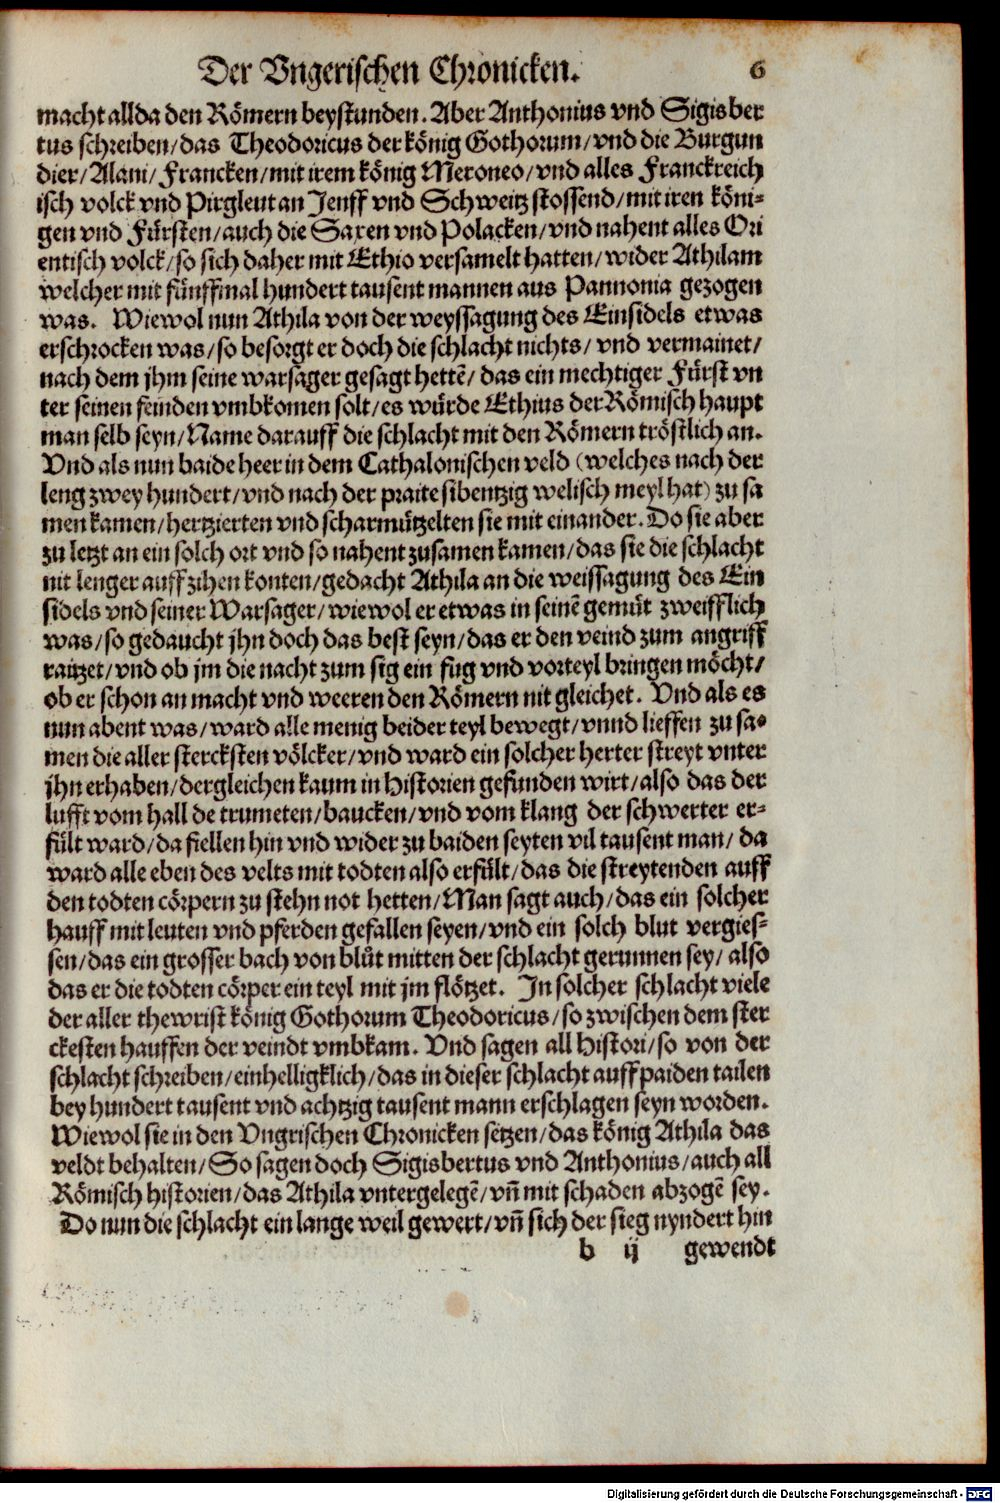 Der Vngerischen Chronicken. 6
macht allda den Römern beystunden. Aber Anthonius vnd Sigisber
tus schreiben/das Theodoricus der könig Gothorum/vnd die Burgun
dier/Alani/Francken/mit irem könig Meroneo/vnd alles Franckreich
isch volck vnd Pirgleut an Jenff vnd Schweitz stossend/mit iren köni-
gen vnd Fürsten/auch die Saxen vnd Polacken/vnd nahent alles Ori
entisch volck/so sich daher mit Ethio versamelt hatten/wider Athilam
welcher mit fünffmal hundert tausent mannen aus Pannonia gezogen
was. Wiewol nun Athila von der weyssagung des Einsidels etwas
erschrocken was/so besorgt er doch die schlacht nichts/vnd vermainet/
nach dem jhm seine warsager gesagt hettē/das ein mechtiger Fürst vn
ter seinen feinden vmbkomen solt/es würde Ethius der Römisch haupt
man selb seyn/Name darauff die schlacht mit den Römern tröstlich an.
Vnd als nun baide heer in dem Cathalonischen veld (welches nach der
leng zwey hundert/vnd nach der praite sibentzig welisch meyl hat) zu sa
men kamen/hertzierten vnd scharmützelten sie mit einander. Do sie aber
zu letzt an ein solch ort vnd so nahent zusamen kamen/das sie die schlacht
nit lenger auff zihen konten/gedacht Athila an die weissagung des Ein
sidels vnd seiner Warsager/wiewol er etwas in seinē gemüt zweifflich
was/so gedaucht jhn doch das best seyn/das er den veind zum angriff
raitzet/vnd ob jm die nacht zum sig ein fug vnd vorteyl bringen möcht/
ob er schon an macht vnd weeren den Römern nit gleichet. Vnd als es
nun abent was/ward alle menig beider teyl bewegt/vnnd lieffen zu sa-
men die aller stercksten völcker/vnd ward ein solcher herter streyt vnter
jhn erhaben/dergleichen kaum in Historien gefunden wirt/also das der
lufft vom hall de trumeten/baucken/vnd vom klang der schwerter er-
fült ward/da fiellen hin vnd wider zu baiden seyten vil tausent man/da
ward alle eben des velts mit todten also erfült/das die streytenden auff
den todten cörpern zu stehn not hetten/Man sagt auch/das ein solcher
hauff mit leuten vnd pferden gefallen seyen/vnd ein solch blut vergies-
sen/das ein grosser bach von blůt mitten der schlacht gerunnen sey/also
das er die todten cörper ein teyl mit jm flötzet. In solcher schlacht viele
der aller thewrist könig Gothorum Theodoricus/so zwischen dem ster
ckesten hauffen der veindt vmbkam. Vnd sagen all Histori/so von der
schlacht schreiben/einhelligklich/das in dieser schlacht auff paiden tailen
bey hundert tausent vnd achtzig tausent mann erschlagen seyn worden.
Wiewol sie in den Vngrischen Chronicken setzen/das könig Athila das
veldt behalten/So sagen doch Sigisbertus vnd Anthonius/auch all
Römisch historien/das Athila vntergelegē/vn̄ mit schaden abzogē sey.
Do nun die schlacht ein lange weil gewert/vn̄ sich der sieg nyndert hin
b ij gewendt
Digitalisierung gefördert durch die Deutsche Forschungsgemeinschaft - DFG